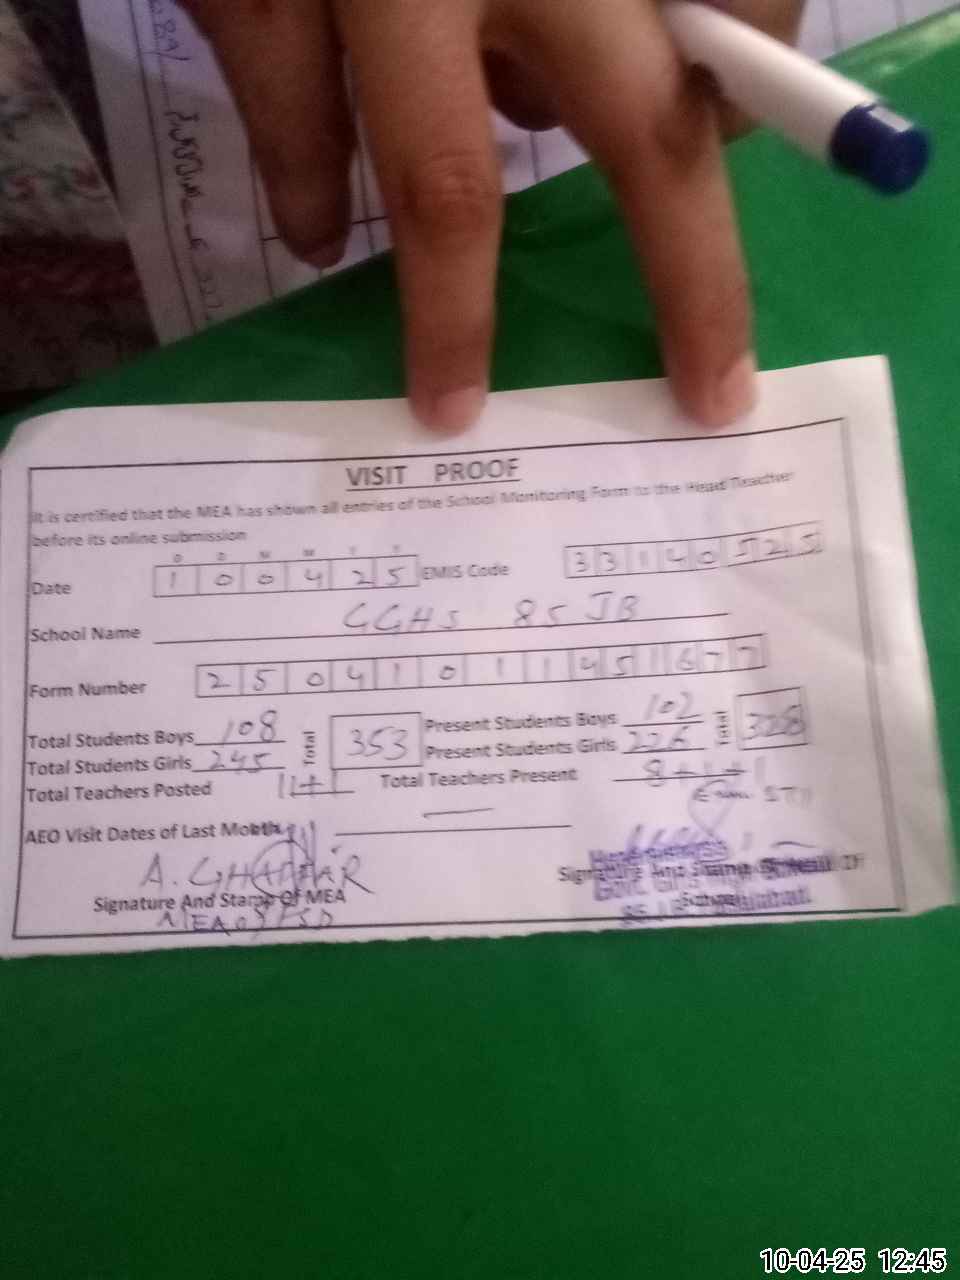 VISIT PROOF
It is certified that the MEA has shown all entries of the School Monitoring Form to the Head Teacher
before its online submission
D D M M Y Y
Date 1 0 0 4 2 5 EMIS Code 3 3 1 4 0 5 2 5
School Name GGHS 85 JB
Form Number 2 5 0 4 1 0 1 1 4 5 1 6 7 7
Total Students Boys 108 Total 353 Present Students Boys 102 Total 328
Total Students Girls 245 Present Students Girls 226
Total Teachers Posted 11+1 Total Teachers Present 8+1+1
AEO Visit Dates of Last Month —
A. GHAFFAR
Signature And Stamp Of MEA Signature And Stamp
MEA School
10-04-25 12:45